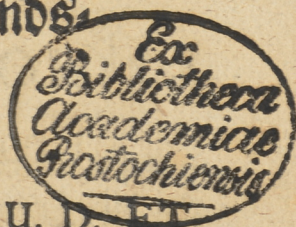 nds.
Ex
Bibliotheca
Academiae
Rostochiensis
H. D. ET